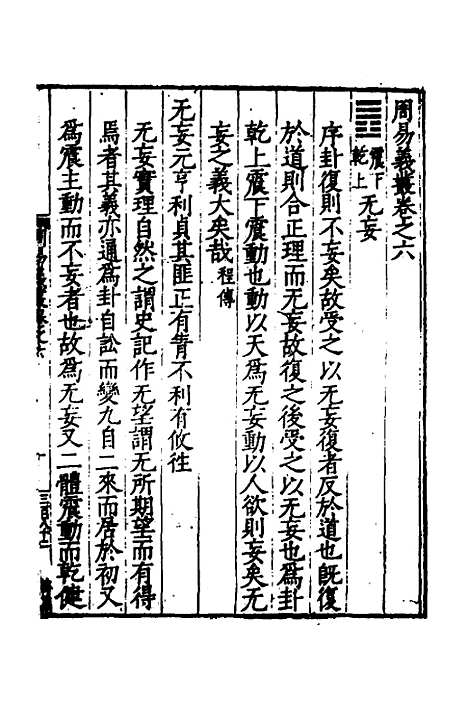 周易義叢卷之六
震下乾上 无妄
序卦復則不妄矣故受之以无妄復者反於道也既復
於道則合正理而无妄故復之後受之以无妄也為卦
乾上震下震動也動以天為无妄動以人欲則妄矣无
妄之義大矣哉程傳
无妄元亨利貞其匪正有眚不利有攸往
无妄實理自然之謂史記作无望謂无所期望而有得
焉者其義亦通為卦自訟而變九自二來而居於初又
為震主動而不妄者也故為无妄又二體震動而乾健